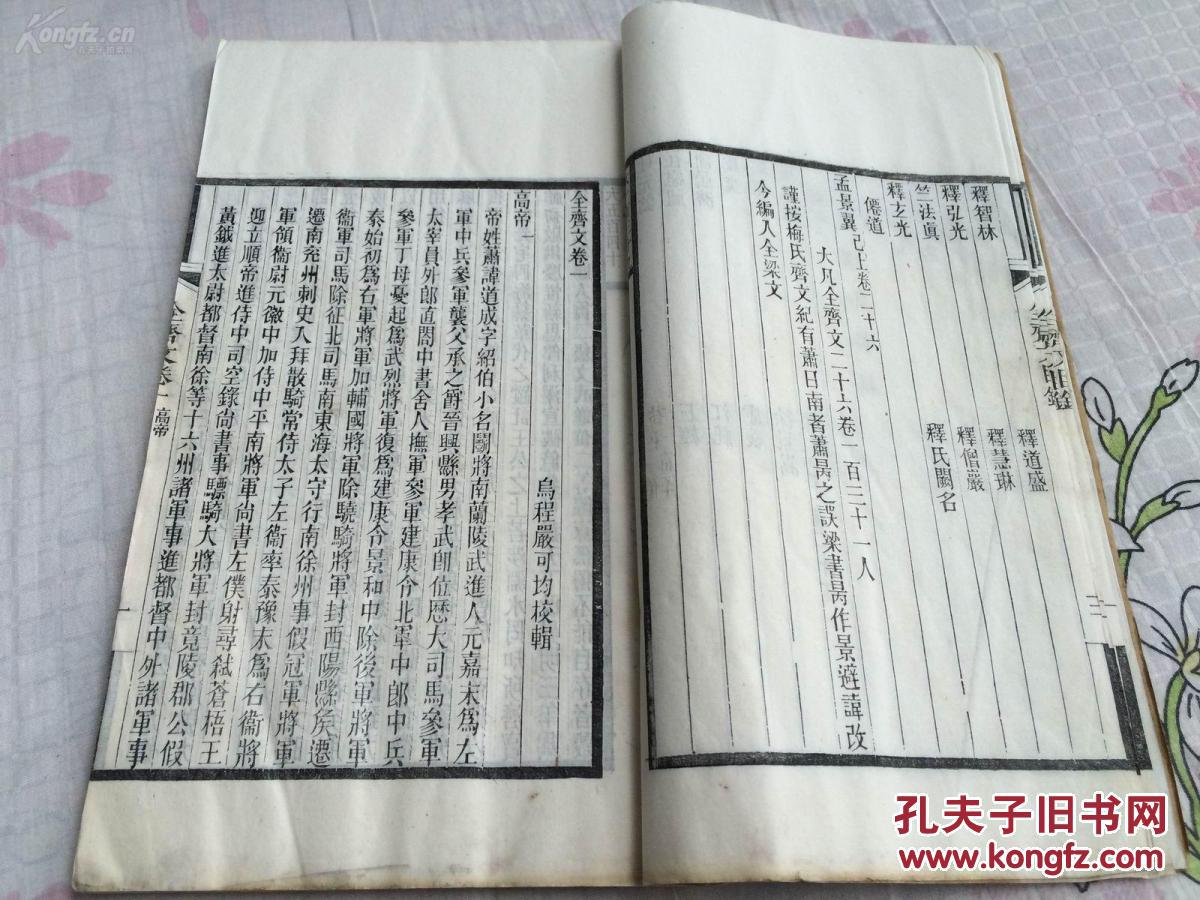 Kongfz.cn
孔夫子旧书网
釋智林
釋道盛
釋弘光
釋慧琳
竺法真
釋僧巖
釋玄光
釋氏闕名
僊道
孟景翼已上卷二十六
大凡全齊文二十六卷一百三十一人
謹按梅氏齊文紀有蕭日南者蕭昺之誤梁書昺作景避諱改
今編入全梁文
全齊文卷一
烏程嚴可均校輯
高帝一
帝姓蕭諱道成字紹伯小名鬭將南蘭陵武進人元嘉末爲左
軍中兵參軍襲父承之爵晉興縣男孝武卽位歷大司馬參軍
太宰員外郎直閤中書舍人撫軍參軍建康令北軍中郎中兵
參軍丁母憂起爲武烈將軍復爲建康令景和中除後軍將軍
泰始初爲右軍將軍加輔國將軍除驍騎將軍封西陽縣矦遷
衞軍司馬除征北司馬南東海太守行南徐州事假冠軍將軍
遷南兗州刺史入拜散騎常侍太子左衞率泰豫末爲右衞將
軍領衞尉元徽中加侍中平南將軍尚書左僕射尋弒蒼梧王
迎立順帝進侍中司空錄尚書事驃騎大將軍封竟陵郡公假
黃鉞進太尉都督南徐等十六州諸軍事進都督中外諸軍事
全齊文卷一 高帝
一
孔夫子旧书网
www.kongfz.com